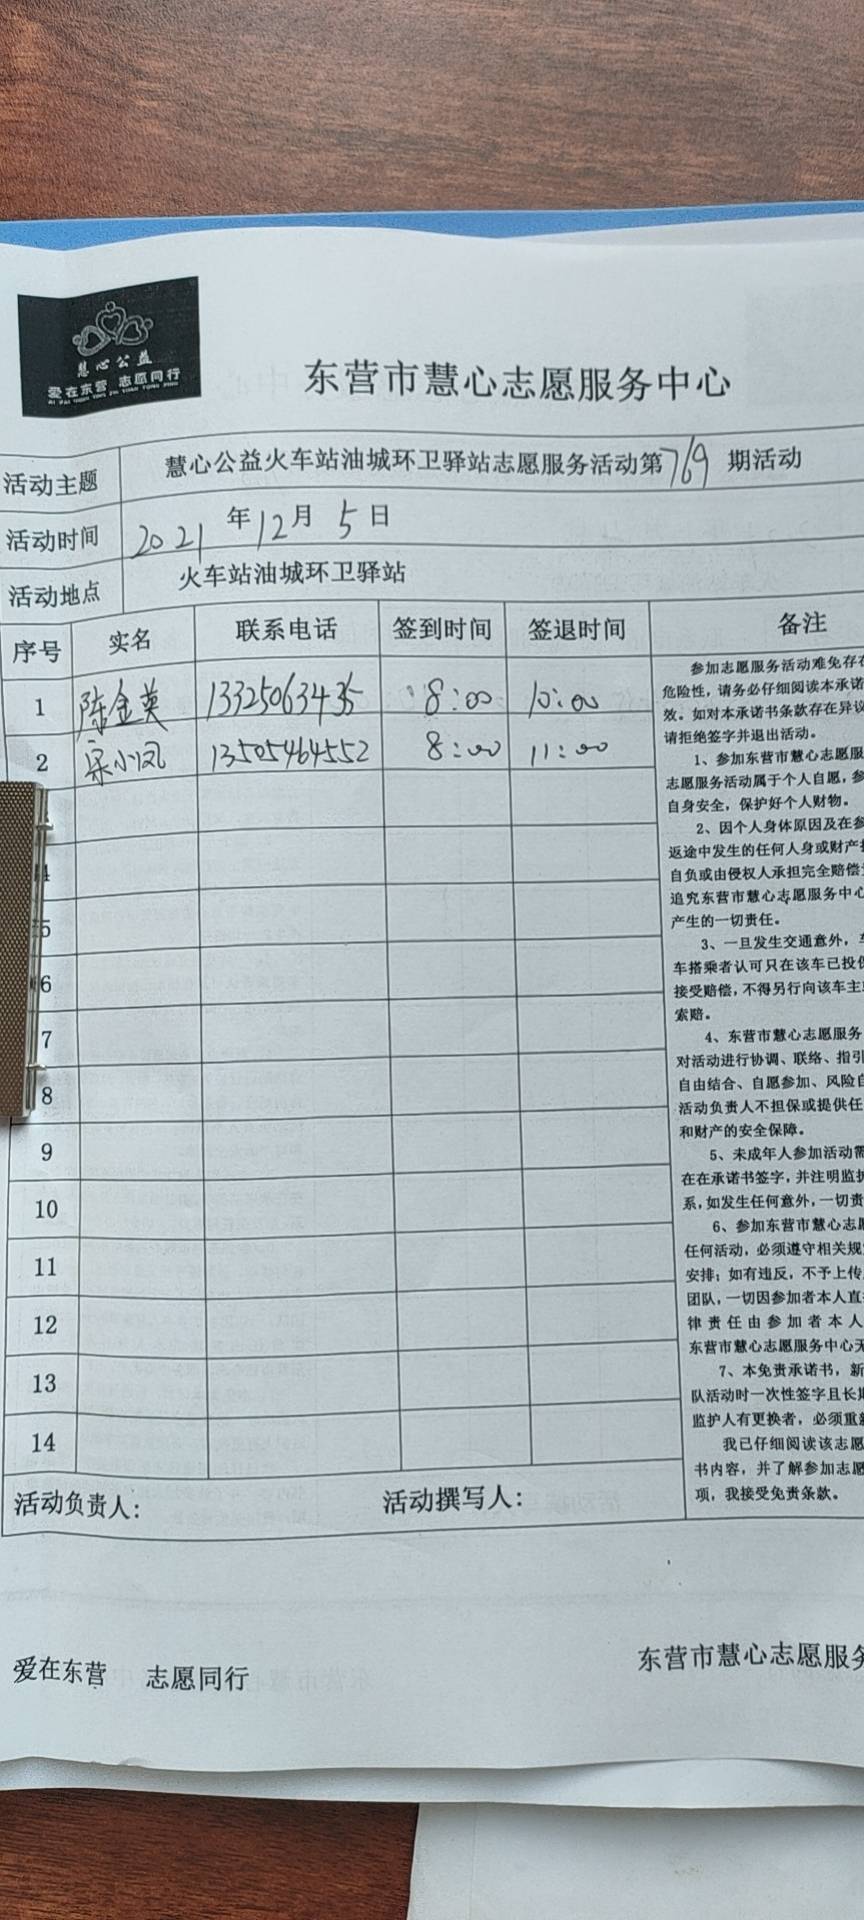 慧心公益
爱在东营 志愿同行
东营市慧心志愿服务中心
活动主题 慧心公益火车站油城环卫驿站志愿服务活动第769期活动
活动时间 2021年12月5日
活动地点 火车站油城环卫驿站
序号 实名 联系电话 签到时间 签退时间 备注
1 陈金英 13325063435 8:00 10:00
2 宋小凤 13505464552 8:00 11:00
4
5
6
7
8
9
10
11
12
13
14
参加志愿服务活动难免存在
危险性，请务必仔细阅读本承诺
效。如对本承诺书条款存在异议
请拒绝签字并退出活动。
1、参加东营市慧心志愿服
志愿服务活动属于个人自愿，参
自身安全，保护好个人财物。
2、因个人身体原因及在参
返途中发生的任何人身或财产
自负或由侵权人承担完全赔偿
追究东营市慧心志愿服务中心
产生的一切责任。
3、一旦发生交通意外，
车搭乘者认可只在该车已投保
接受赔偿，不得另行向该车主
索赔。
4、东营市慧心志愿服务
对活动进行协调、联络、指引
自由结合、自愿参加、风险自
活动负责人不担保或提供任
和财产的安全保障。
5、未成年人参加活动需
在在承诺书签字，并注明监护
系，如发生任何意外，一切责
6、参加东营市慧心志愿
任何活动，必须遵守相关规
安排；如有违反，不予上传
团队，一切因参加者本人直
律责任由参加者本人
东营市慧心志愿服务中心无
7、本免责承诺书，新
队活动时一次性签字且长期
监护人有更换者，必须重新
我已仔细阅读该志愿
书内容，并了解参加志愿
项，我接受免责条款。
活动负责人： 活动撰写人：
爱在东营 志愿同行 东营市慧心志愿服务